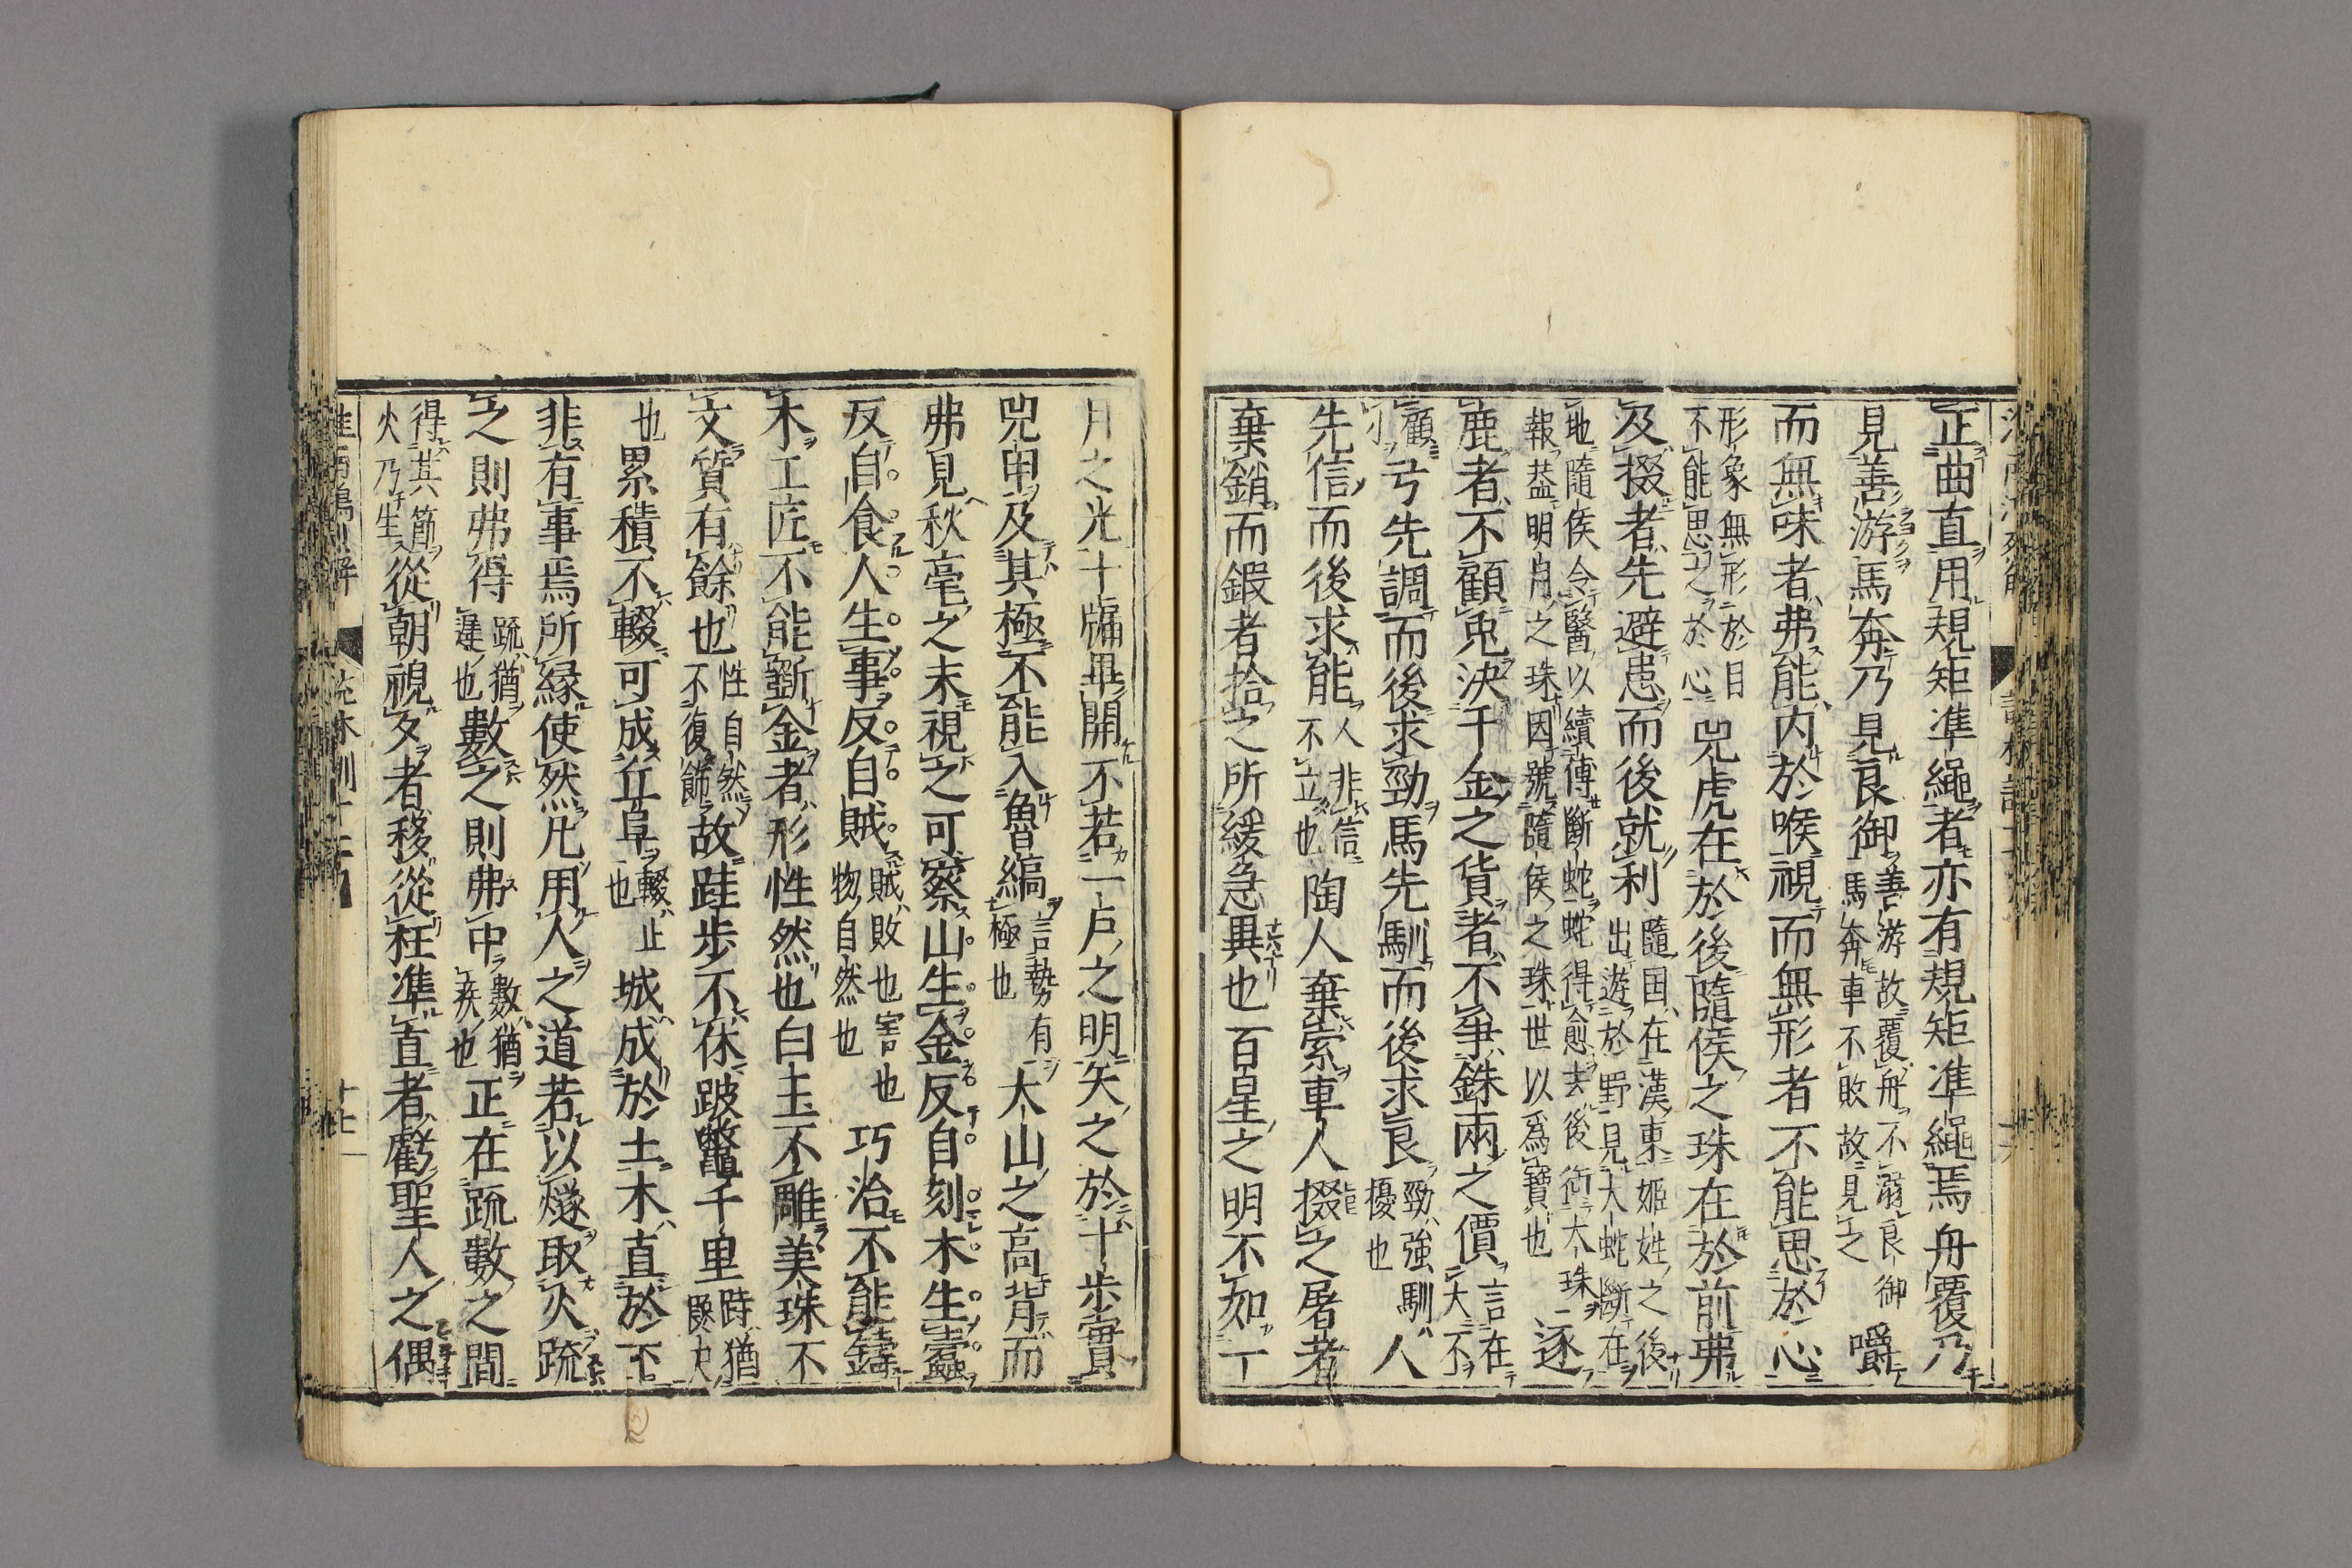 正曲直用規矩準繩者亦有規矩準繩焉舟覆乃
見善游馬奔乃見良御善游故覆舟不溺良御
馬奔車不敗故見之嚼
而無味者弗能内於喉視而無形者不能思於心
形象無形於目
不能思之於心兕虎在於後隨侯之珠在於前弗
及掇者先避患而後就利隨国在漢東姬姓之後
出遊於野見大蛇斷在
地隨侯令醫以續傅斷蛇蛇得愈去後銜大珠
報蓋明月之珠因號隨侯之珠世以爲寶也逐
鹿者不顧兎決千金之貨者不争銖兩之價言在
大不
顧
小弓先調而後求勁馬先馴而後求良勁強馴
擾也人
先信而後求能人非信
不立也陶人棄索車人掇之屠者
棄銷而鍜者拾之所緩急異也百星之明不如一
月之光十牖畢開不若一戸之明矢之於十歩貫
兕甲及其極不能入魯縞言勢有
極也太山之高背而
弗見秋毫之末視之可察山生金反自刻木生蠹
反自食人生事反自賊賊敗也害也
物自然也巧冶不能鑄
木工匠不能斲金者形性然也白玉不雕美珠不
文質有餘也性自然
不復飾故跬歩不休跛鼈千里跬猶
蹞也
累積不輟可成丘阜輟止
也城成於土木直於下
非有事焉所縁使然凡用人之道若以燧取火疏
之則弗得疏猶
遲也數之則弗中數猶
疾也正在疏數之間
得其節
火乃生從朝視夕者移從枉準直者虧聖人之偶